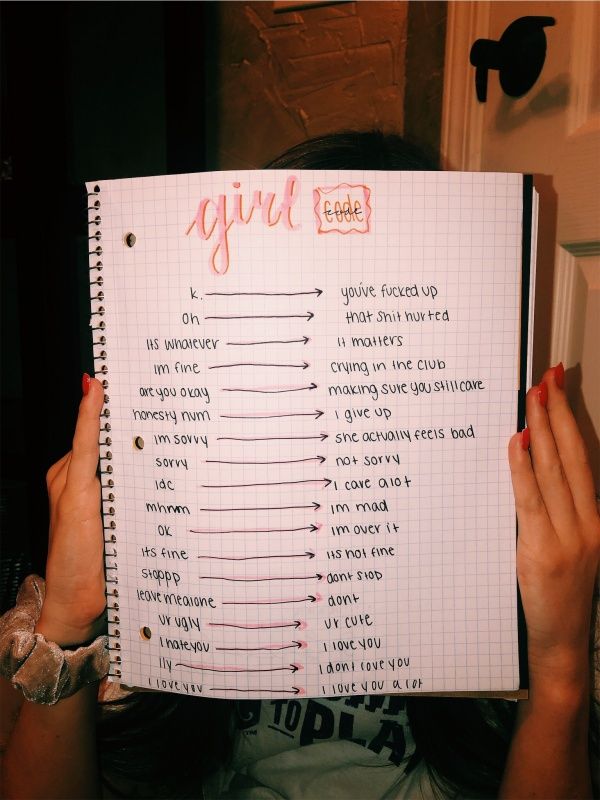 girl code
k. → you've fucked up
oh → that shit hurted
its whatever → it matters
im fine → crying in the club
are you okay → making sure you still care
honesty hum → i give up
im sorry → she actually feels bad
sorry → not sorry
idc → i care alot
mhmm → im mad
ok → im over it
its fine → its not fine
stoppp → dont stop
leave me alone → dont
ur ugly → ur cute
i hate you → i love you
ily → i dont love you
i love you → i love you alot
TO PLA